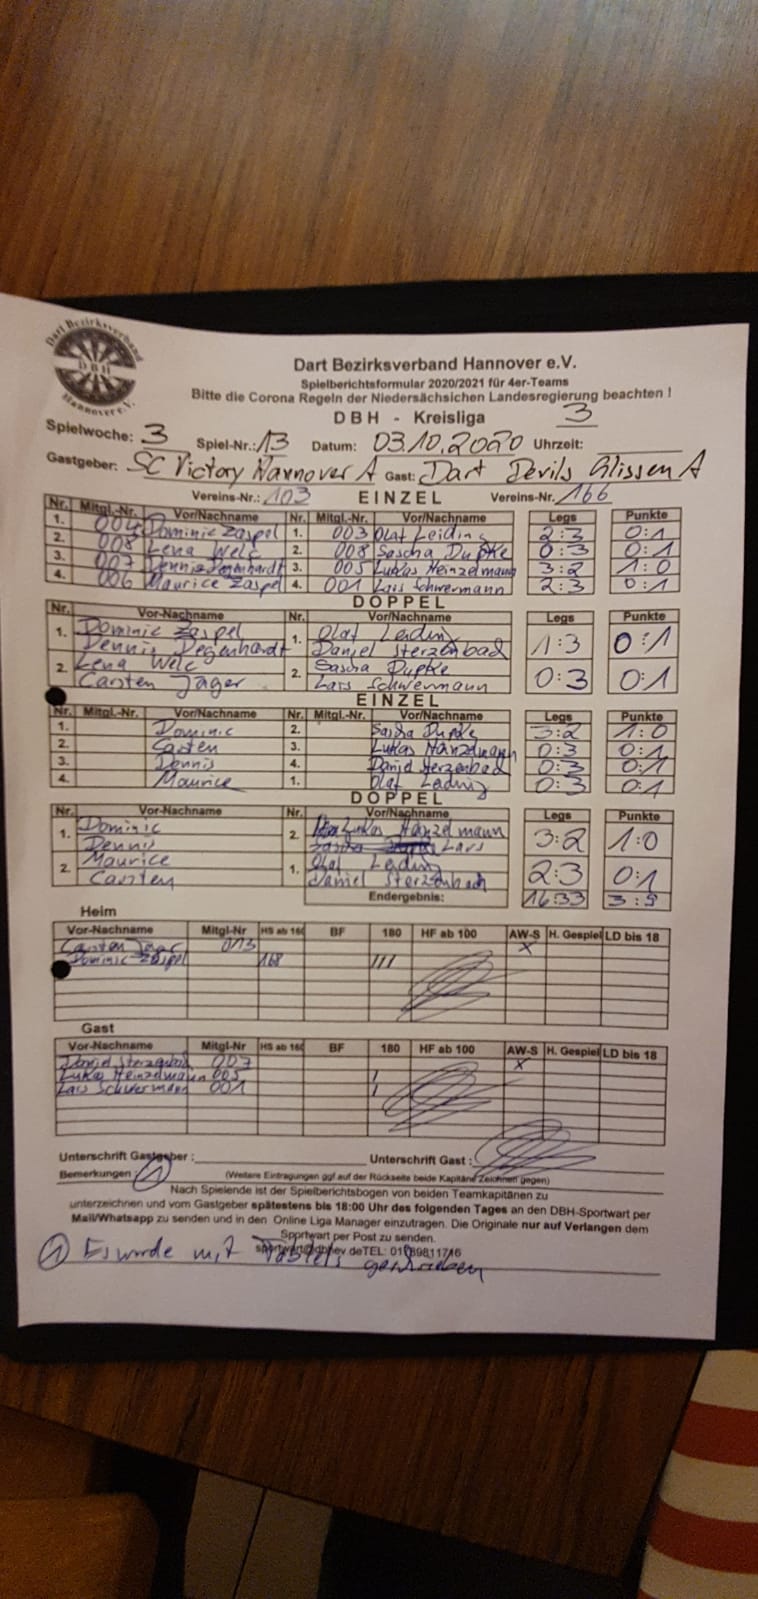 Dart Bezirksverband
DBH
Hannover e.V.
Dart Bezirksverband Hannover e.V.
Spielberichtsformular 2020/2021 für 4er-Teams
Bitte die Corona Regeln der Niedersächsichen Landesregierung beachten !
DBH - Kreisliga 3
Spielwoche: 3 Spiel-Nr.: 13 Datum: 03.10.2020 Uhrzeit:
Gastgeber: SC Victory Hannover A Gast: Dart Devils Glissen A
Vereins-Nr.: 103 EINZEL Vereins-Nr. 166
Nr. Mitgl.-Nr. Vor/Nachname Nr. Mitgl.-Nr. Vor/Nachname Legs Punkte
1. 004 Dominic Zaspel 1. 003 Olaf Leiding 2:3 0:1
2. 008 Lena Welc 2. 008 Sascha Dupke 0:3 0:1
3. 007 Dennis Degenhardt 3. 005 Lukas Heinzelmann 3:2 1:0
4. 006 Maurice Zaspel 4. 001 Lars Schwermann 2:3 0:1
DOPPEL
Nr. Vor-Nachname Nr. Vor/Nachname Legs Punkte
1. Dominic Zaspel 1. Olaf Leiding 1:3 0:1
Dennis Degenhardt Daniel Sterzenbad
2. Lena Welc 2. Sascha Dupke 0:3 0:1
Carsten Jäger Lars Schwermann
EINZEL
Nr. Mitgl.-Nr. Vor/Nachname Nr. Mitgl.-Nr. Vor/Nachname Legs Punkte
1. Dominic 2. Sascha Dupke 3:2 1:0
2. Carsten 3. Lukas Hänzelmann 0:3 0:1
3. Dennis 4. Daniel Sterzenbad 0:3 0:1
4. Maurice 1. Olaf Leiding 0:3 0:1
DOPPEL
Nr. Vor-Nachname Nr. Vor/Nachname Legs Punkte
1. Dominic 2. Lukas Hänzelmann 3:2 1:0
Dennis Lars
2. Maurice 1. Olaf Leiding 2:3 0:1
Carsten Daniel Sterzenbach
Endergebnis: 16:33 3:9
Heim
Vor-Nachname Mitgl-Nr HS ab 160 BF 180 HF ab 100 AW-S H. Gespiel LD bis 18
Carsten Jäger 013 X
Dominic Zaspel 168 III
Gast
Vor-Nachname Mitgl-Nr HS ab 160 BF 180 HF ab 100 AW-S H. Gespiel LD bis 18
Daniel Sterzenbad 007 X
Lukas Heinzelmann 005 I
Lars Schwermann 001 I
Unterschrift Gastgeber : Unterschrift Gast :
Bemerkungen : 1 (Weitere Eintragungen ggf auf der Rückseite beide Kapitäne Zeichnen gegen)
Nach Spielende ist der Spielberichtsbogen von beiden Teamkapitänen zu
unterzeichnen und vom Gastgeber spätestens bis 18:00 Uhr des folgenden Tages an den DBH-Sportwart per
Mail/Whatsapp zu senden und in den Online Liga Manager einzutragen. Die Originale nur auf Verlangen dem
Sportwart per Post zu senden.
1 Es wurde mit Tablets geschrieben